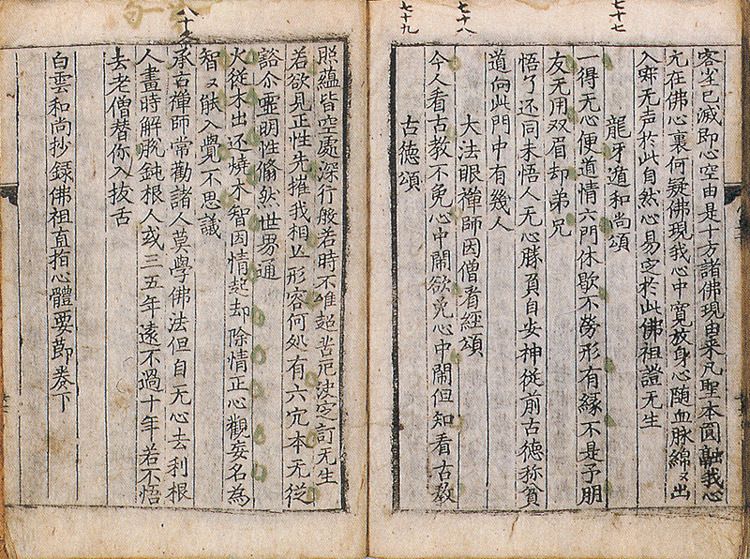 七十七
七十八
七十九
客尘已滅即心空由是十方諸佛現由来凡聖本圓融我心
元在佛心裏何疑佛現我心中寬放身心随血脉綿〻出
入㝠无声於此自然心易安於此佛祖證无生
龍牙遁和尚頌
一得无心便道情六門休歇不勞形有緣不是予朋
友无用双眉却弟兄
悟了还同未悟人无心勝負自安神従前古德称貧
道向此門中有幾人
大法眼禪師因僧看經頌
今人看古教不免心中鬧欲免心中鬧但知看古教
古德頌
八十
照蘊皆空處深行般若時不唯超苦厄決定訂无生
若欲見正性先摧我相山形容何処有六宂本无従
谽尒靈明性翛然世界通
火從木出还燒木智因情起却除情正心觀妄名為
智〻能入覺不思議
承古禪師常勸諸人莫學佛法但自无心去利根
人畫時解脫鈍根人或三五年遠不過十年若不悟
去老僧替你入拔舌
白雲和尚抄録佛祖直指心體要節卷下